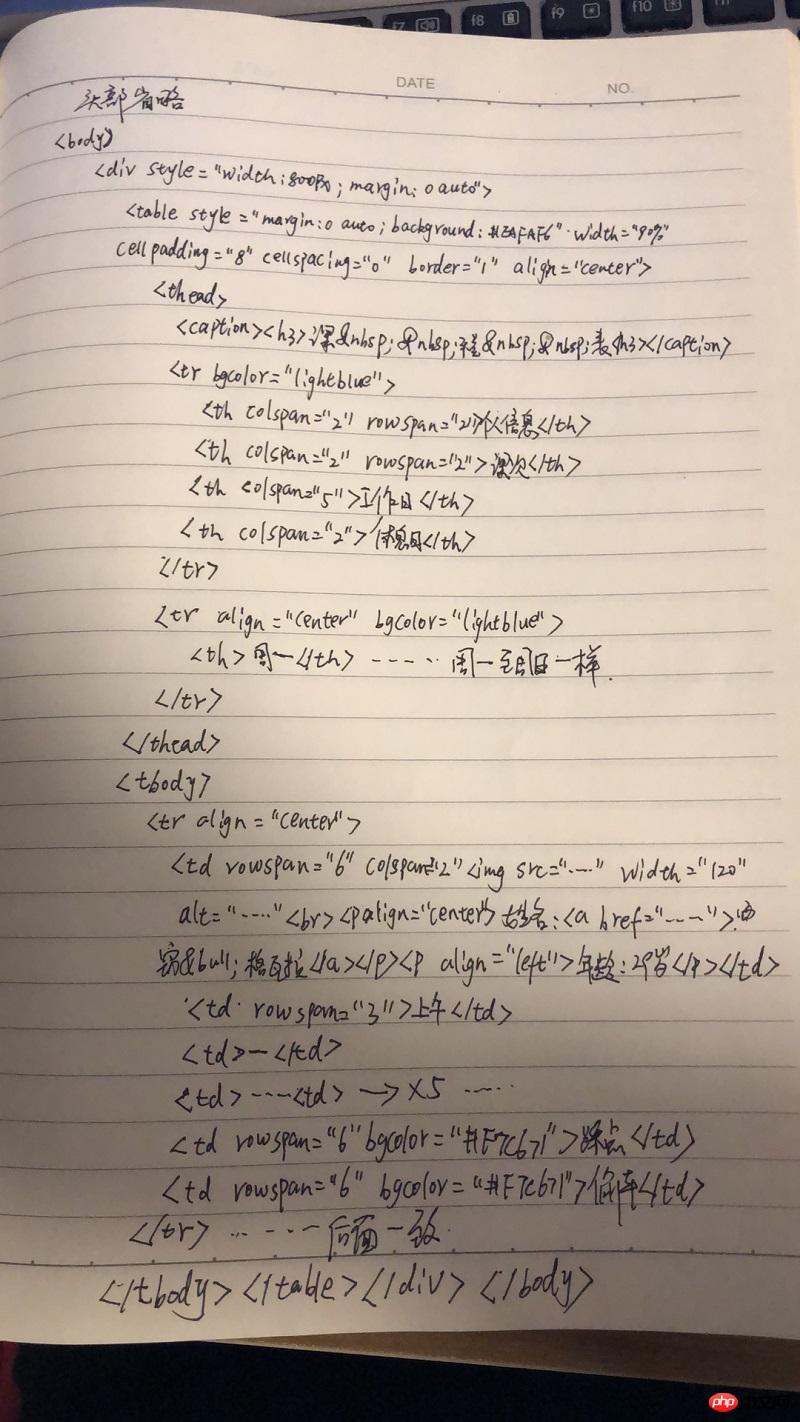 f7 f8 f9 f10
DATE NO.
头部省略
<body>
<div style="width:800px; margin: 0 auto">
<table style="margin:0 auto; background: #EAFAF6" width="90%"
cellpadding="8" cellspacing="0" border="1" align="center">
<thead>
<caption><h3>课&nbsp;&nbsp;程&nbsp;&nbsp;表<h3></caption>
<tr bgcolor="lightblue">
<th colspan="2" rowspan="2">个人信息</th>
<th colspan="2" rowspan="2">课次</th>
<th colspan="5">工作日</th>
<th colspan="2">休息日</th>
</tr>
<tr align="center" bgcolor="lightblue">
<th>周一</th> ...... 周一至周日一样.
</tr>
</thead>
<tbody>
<tr align="center">
<td rowspan="6" colspan="2"<img src="....." width="120"
alt="....."<br><p align="center">姓名:<a href=".....">
&bull; 格瓦拉</a></p><p align="left">年龄:29岁</p></td>
<td rowspan="3">上午</td>
<td>一</td>
<td>....<td> → ×5 .....
<td rowspan="6" bgcolor="#F7C671">踩点</td>
<td rowspan="6" bgcolor="#F7C671"></td>
</tr> ...... 后面一致.
</tbody></table></div></body>
php